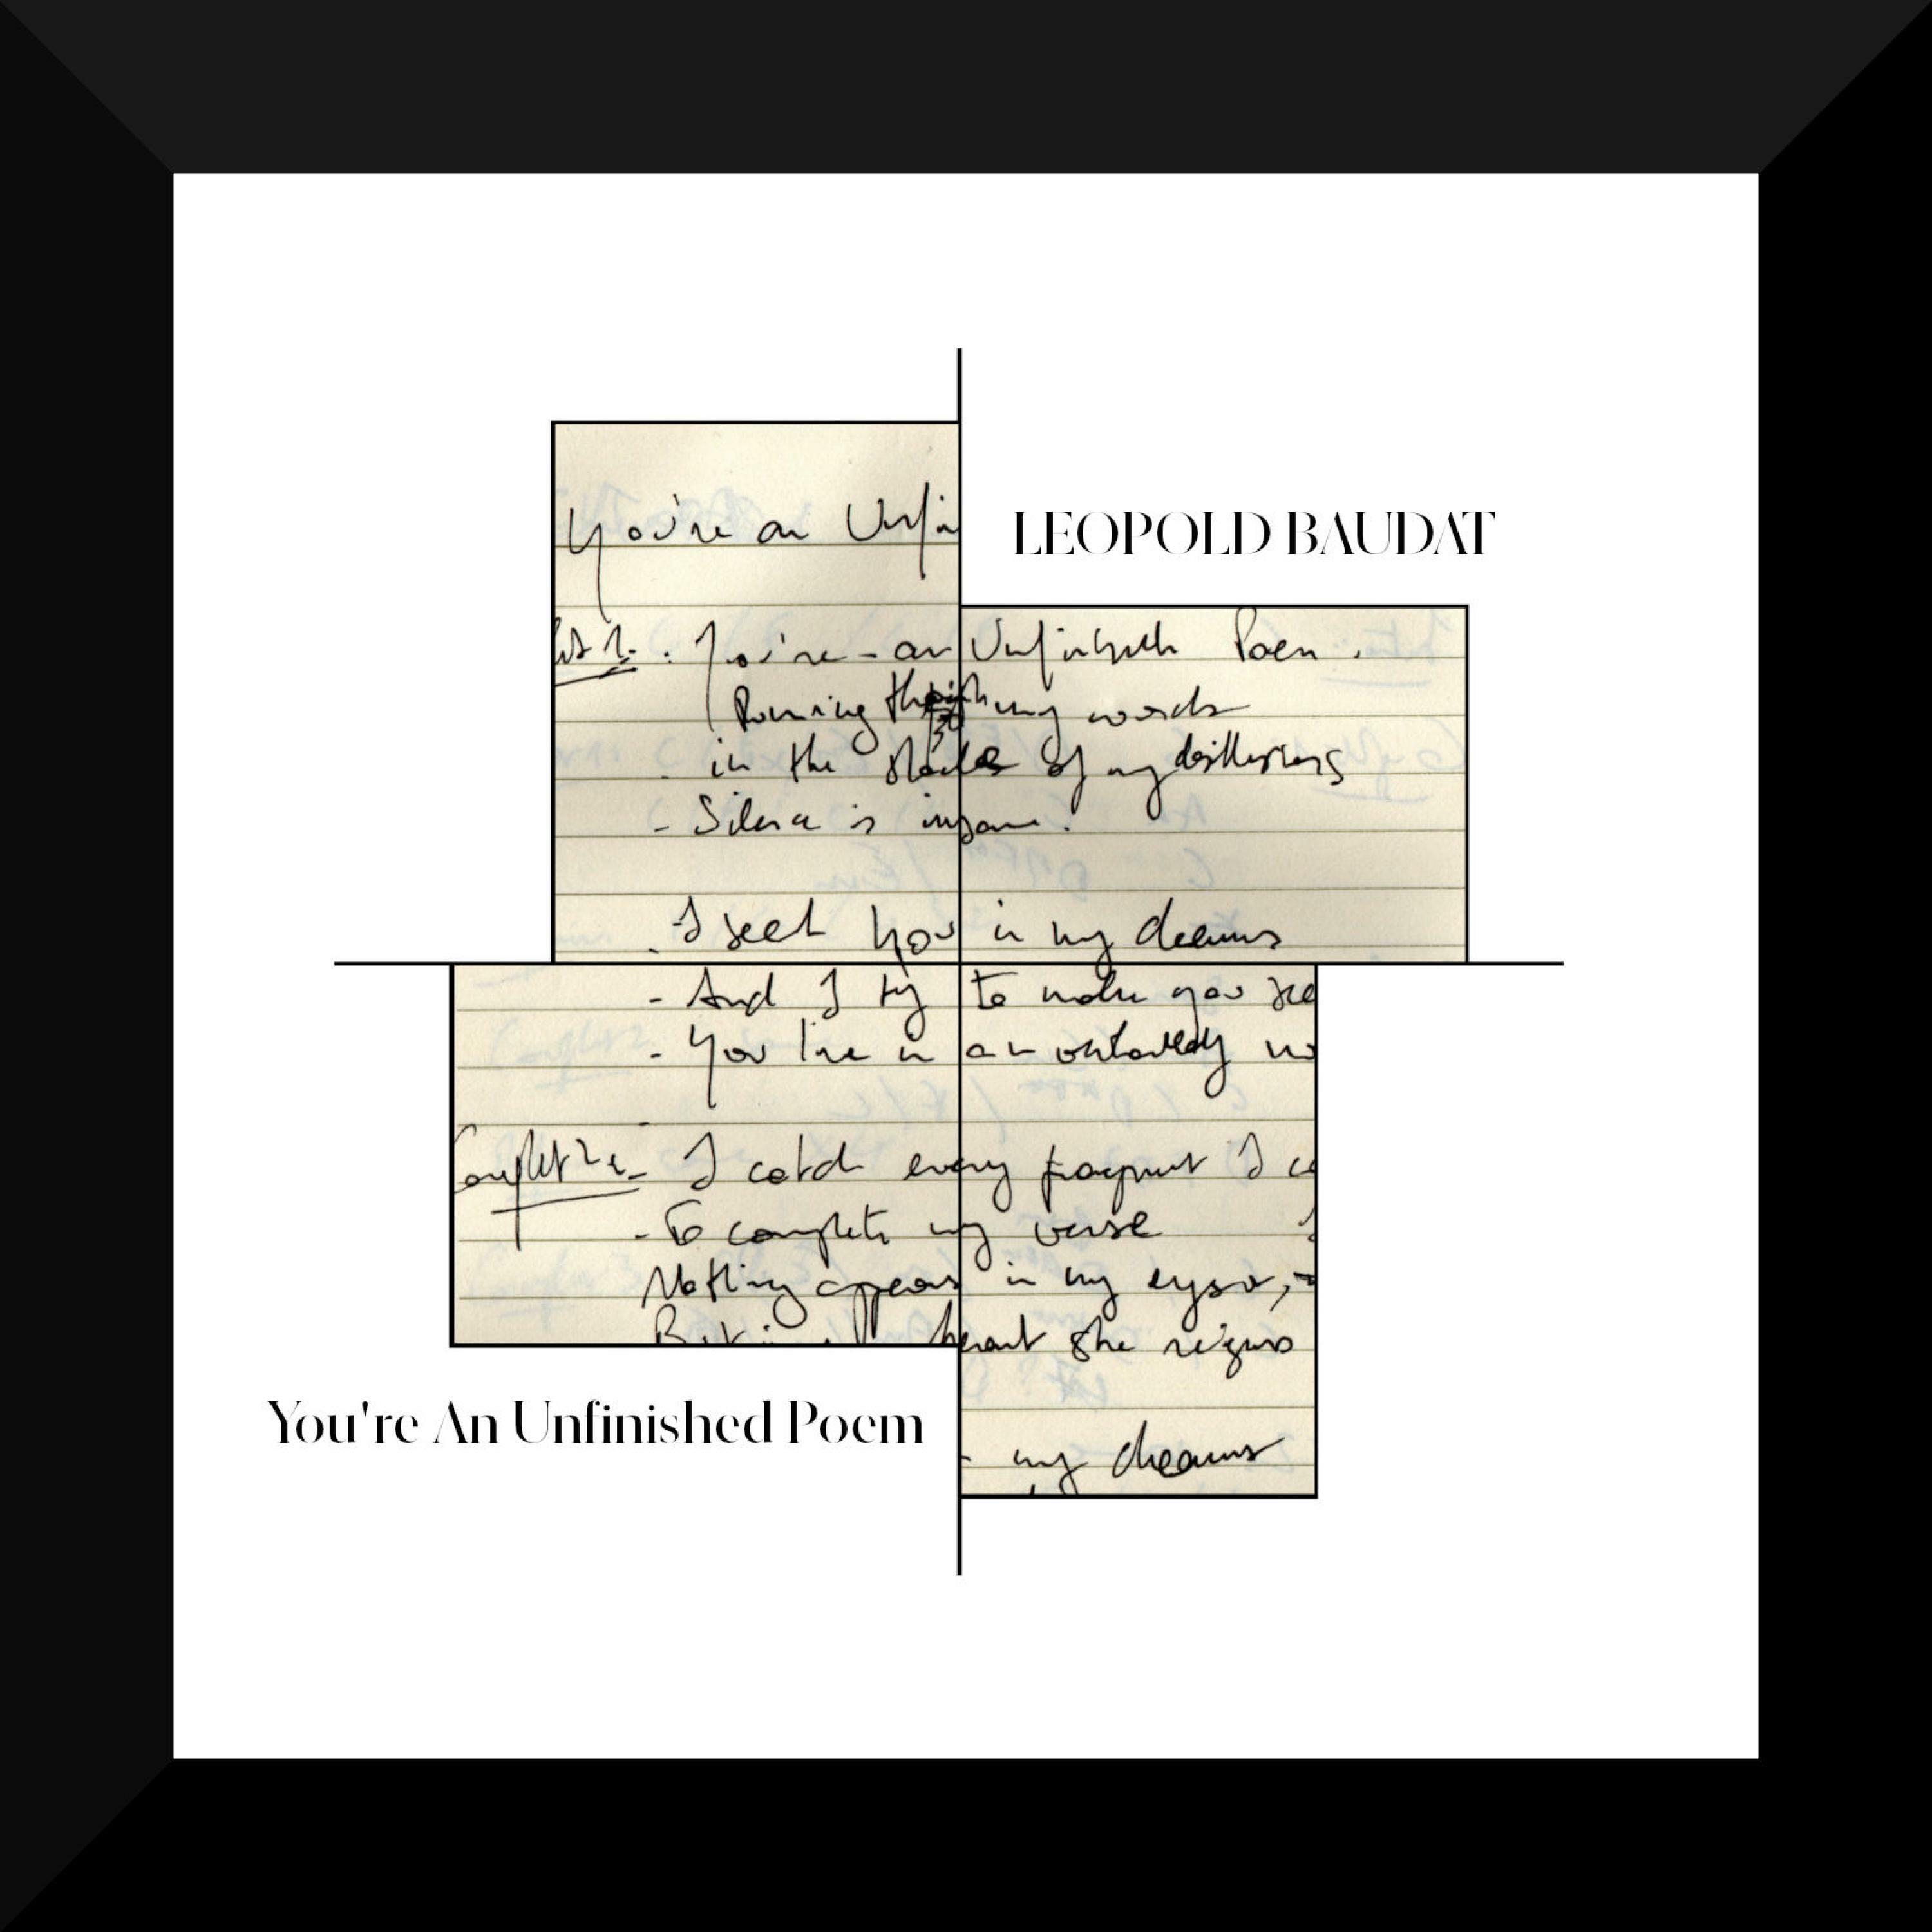 You're an Unfin
LEOPOLD BAUDAT
You're - an Unfinished Poem.
Running through my words
in the shades of my
- Silence is insane.
- I seek you in my dreams
- And I try to make you see
- You live in an
Couplet 2: - I catch every fragment I c
- To complete my verse
Nothing appears in my eyes,
But in heart she reigns
You're An Unfinished Poem
my dreams